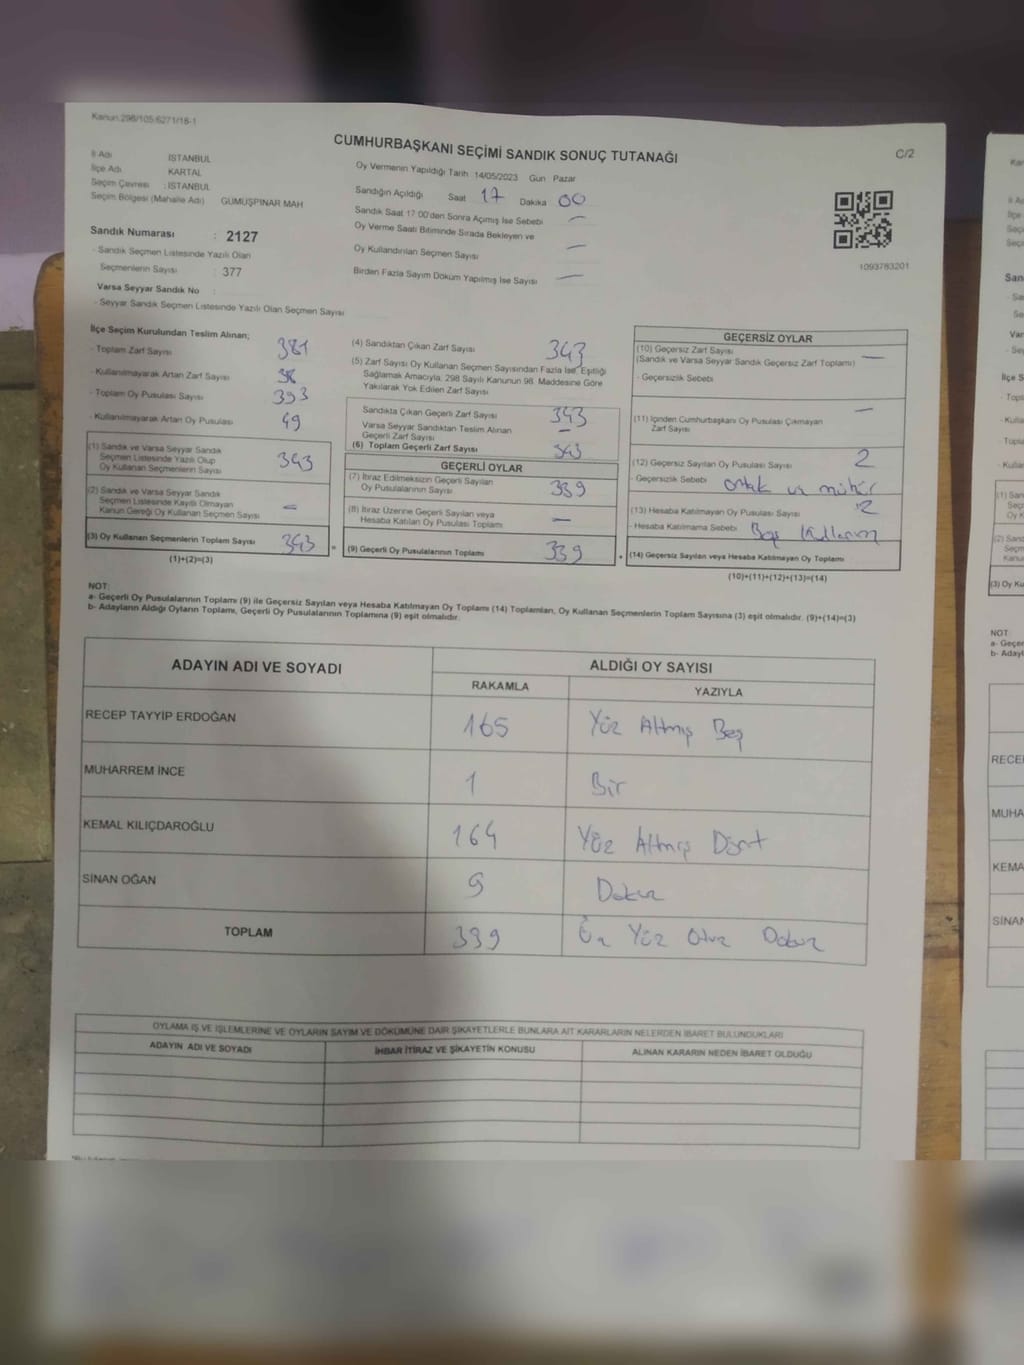 Kanun:298/105:6271/18-1
CUMHURBAŞKANI SEÇİMİ SANDIK SONUÇ TUTANAĞI
C/2
İl Adı İSTANBUL
İlçe Adı KARTAL
Seçim Çevresi : İSTANBUL
Seçim Bölgesi (Mahalle Adı) GÜMÜŞPINAR MAH
Sandık Numarası : 2127
- Sandık Seçmen Listesinde Yazılı Olan
Seçmenlerin Sayısı : 377
Varsa Seyyar Sandık No :
- Seyyar Sandık Seçmen Listesinde Yazılı Olan Seçmen Sayısı
Oy Vermenin Yapıldığı Tarih :14/05/2023 Gün Pazar
Sandığın Açıldığı Saat 17 Dakika 00
Sandık Saat 17:00'den Sonra Açımış İse Sebebi —
Oy Verme Saati Bitiminde Sırada Bekleyen ve
Oy Kullandırılan Seçmen Sayısı —
Birden Fazla Sayım Döküm Yapılmış İse Sayısı —
1093783201
İlçe Seçim Kurulundan Teslim Alınan;
- Toplam Zarf Sayısı 381
- Kullanılmayarak Artan Zarf Sayısı 38
- Toplam Oy Pusulası Sayısı 393
- Kullanılmayarak Artan Oy Pusulası 49
(1) Sandık ve Varsa Seyyar Sandık
Seçmen Listesinde Yazılı Olup
Oy Kullanan Seçmenlerin Sayısı 343
(2) Sandık ve Varsa Seyyar Sandık
Seçmen Listesinde Kayıtlı Olmayan
Kanun Gereği Oy Kullanan Seçmen Sayısı —
(3) Oy Kullanan Seçmenlerin Toplam Sayısı 343
(1)+(2)=(3)
(4) Sandıktan Çıkan Zarf Sayısı 343
(5) Zarf Sayısı Oy Kullanan Seçmen Sayısından Fazla İse, Eşitliği
Sağlamak Amacıyla, 298 Sayılı Kanunun 98. Maddesine Göre
Yakılarak Yok Edilen Zarf Sayısı
Sandıkta Çıkan Geçerli Zarf Sayısı 343
Varsa Seyyar Sandıktan Teslim Alınan
Geçerli Zarf Sayısı —
(6) Toplam Geçerli Zarf Sayısı 343
GEÇERLİ OYLAR
(7) İtiraz Edilmeksizin Geçerli Sayılan
Oy Pusulalarının Sayısı 339
(8) İtiraz Üzerine Geçerli Sayılan veya
Hesaba Katılan Oy Pusulası Toplamı —
= (9) Geçerli Oy Pusulalarının Toplamı 339
GEÇERSİZ OYLAR
(10) Geçersiz Zarf Sayısı
(Sandık ve Varsa Seyyar Sandık Geçersiz Zarf Toplamı) —
- Geçersizlik Sebebi
(11) İçinden Cumhurbaşkanı Oy Pusulası Çıkmayan
Zarf Sayısı —
(12) Geçersiz Sayılan Oy Pusulası Sayısı 2
- Geçersizlik Sebebi Ortak mühür
(13) Hesaba Katılmayan Oy Pusulası Sayısı 2
- Hesaba Katılmama Sebebi Boş
+ (14) Geçersiz Sayılan veya Hesaba Katılmayan Oy Toplamı
(10)+(11)+(12)+(13)=(14)
NOT:
a- Geçerli Oy Pusulalarının Toplamı (9) ile Geçersiz Sayılan veya Hesaba Katılmayan Oy Toplamı (14) Toplamları, Oy Kullanan Seçmenlerin Toplam Sayısına (3) eşit olmalıdır. (9)+(14)=(3)
b- Adayların Aldığı Oyların Toplamı, Geçerli Oy Pusulalarının Toplamına (9) eşit olmalıdır.
ADAYIN ADI VE SOYADI ALDIĞI OY SAYISI
RAKAMLA YAZIYLA
RECEP TAYYİP ERDOĞAN 165 Yüz Altmış Beş
MUHARREM İNCE 1 Bir
KEMAL KILIÇDAROĞLU 164 Yüz Altmış Dört
SİNAN OĞAN 9 Dokuz
TOPLAM 339 Üç Yüz Otuz Dokuz
OYLAMA İŞ VE İŞLEMLERİNE VE OYLARIN SAYIM VE DÖKÜMÜNE DAİR ŞİKAYETLERLE BUNLARA AİT KARARLARIN NELERDEN İBARET BULUNDUKLARI
ADAYIN ADI VE SOYADI İHBAR İTİRAZ VE ŞİKAYETİN KONUSU ALINAN KARARIN NEDEN İBARET OLDUĞU